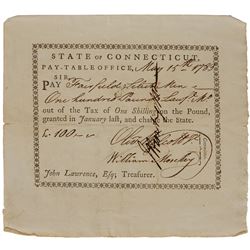 STATE of CONNECTICUT,
PAY-TABLE OFFICE, May 15th 1783
SIR,
PAY Fairfield Select Men
One hundred Pounds
out of the Tax of One Shilling on the Pound,
granted in January last, and charge the State.
£. 100
William Moseley
John Lawrence, Esq; Treasurer.